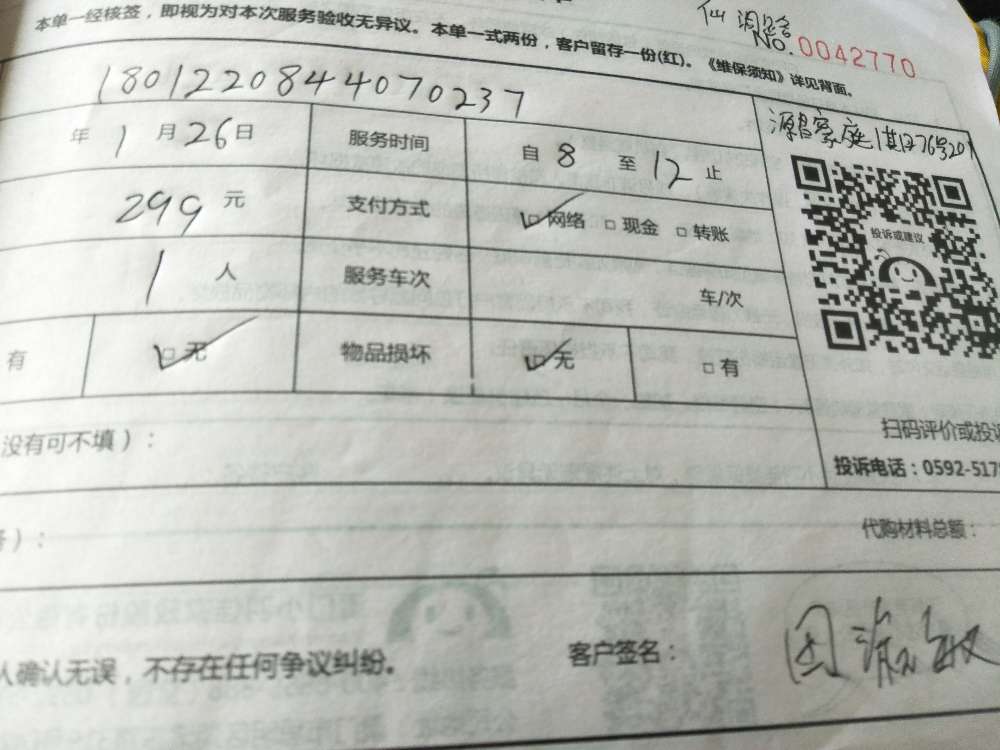 本单一经核签，即视为对本次服务验收无异议。本单一式两份，客户留存一份(红)。《维保须知》详见背面。
No.0042770
1801220844070237
年1月26日 服务时间 自8至12止
299元 支付方式 □网络 □现金 □转账
1人 服务车次 车/次
有 □无 物品损坏 □无 □有
源昌家庭
投诉或建议
扫码评价或投诉
投诉电话：0592-517
没有可不填）：
）：
代购材料总额：
人确认无误，不存在任何争议纠纷。
客户签名：